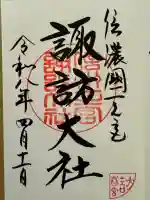 信濃國一之宮
諏訪大社
令和八年四月十二日